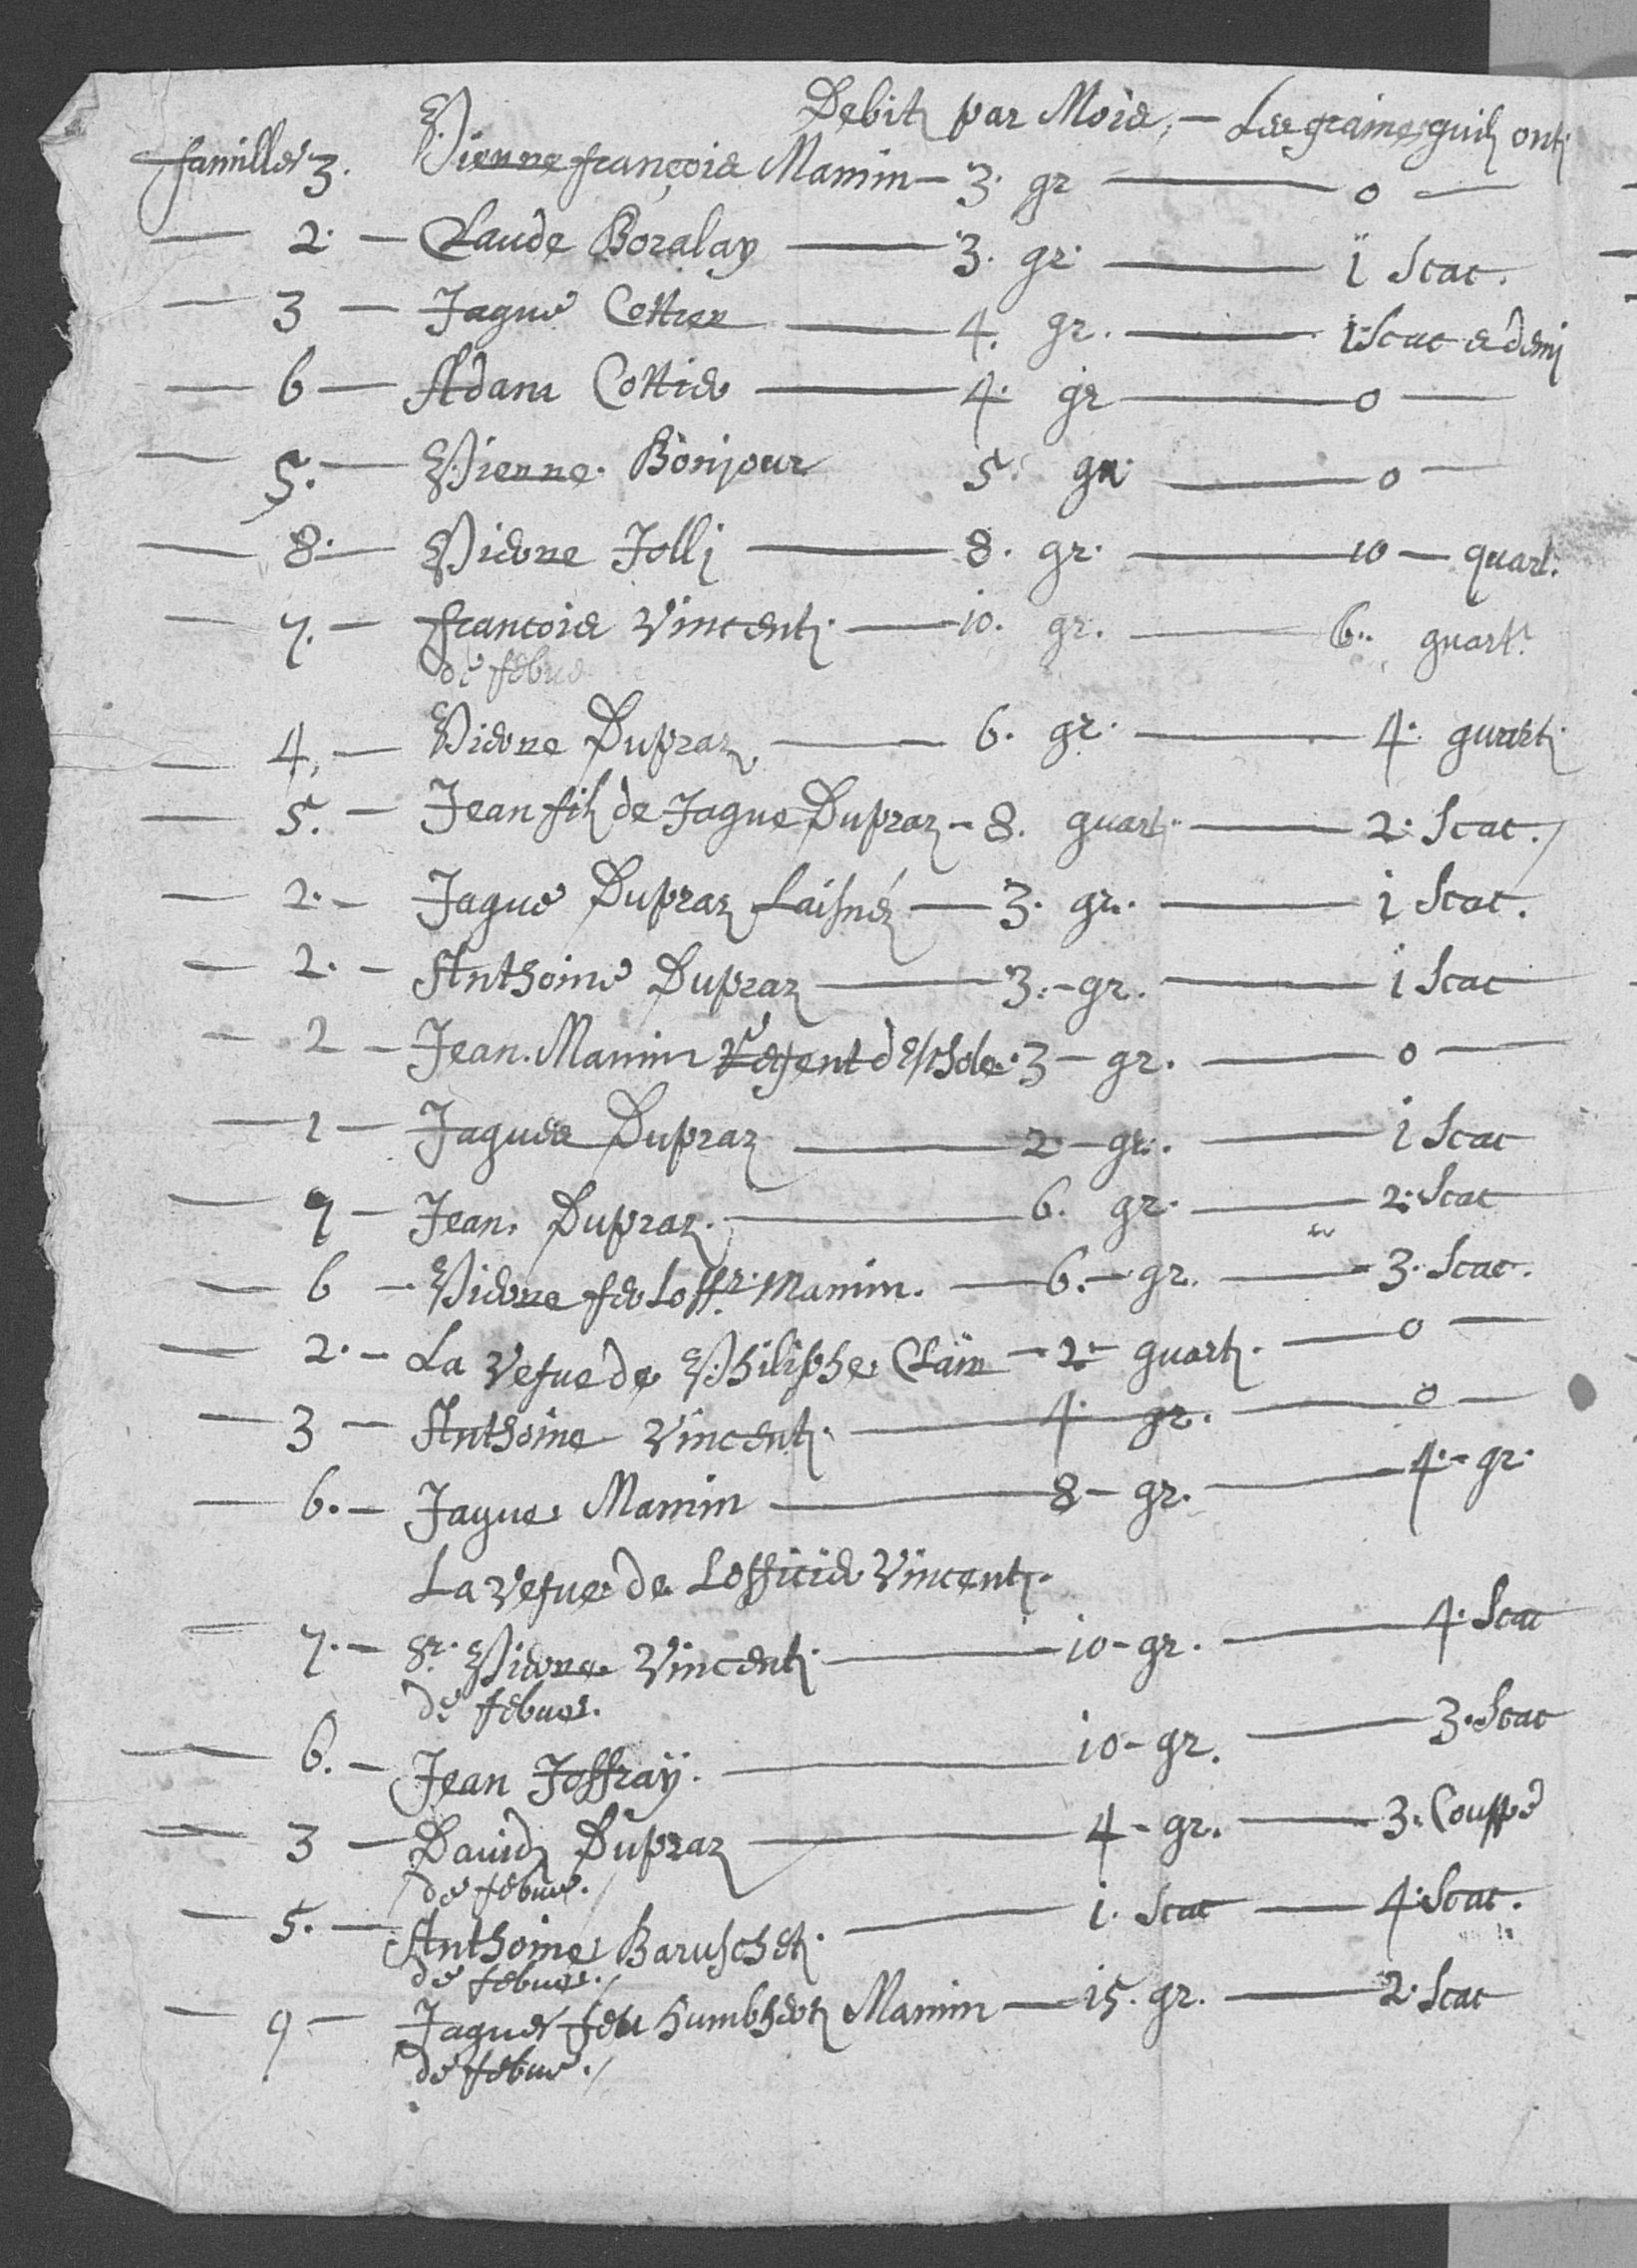 Debitz par Mois, — Les graines quilz ontz
familles 3. Pierre françois Mamin — 3. gr — 0 —
— 2. — Claude Boralay — 3. gr. — 1 Scac.
— 3 — Jaque Cottier — 4. gr. — 1. Scac et demj
— 6 — Adam Cottier — 4. gr — 0 —
— 5. — Pierre Bonjour 5. gr. — 0 —
— 8. — Pierre Jollj — 8. gr. — 10 — quart.
— 7. — françois Vincentz — 10. gr. — 6. quart.
de febue
— 4, — Pierre Dupraz — 6. gr. — 4. quartz
— 5. — Jean filz de Jaque Dupraz — 8. quartz — 2. Scac.
— 2. — Jaque Dupraz Laisnéz — 3. gr. — 1 Scac.
— 2. — Anthoine Dupraz — 3. — gr. — 1 Scac
— 2 — Jean Mamin Regent deschole. 3 — gr. — 0 —
— 1 — Jaques Dupraz — 2 — gr. — 1 Scac
— 9 — Jean Dupraz. — 6. gr. — 2. Scac
— 6 — Pierre feu Loffr. Mamin. — 6. — gr. — 3. Scac.
— 2. — La Vefue de Philiphe Clain — 2 — quartz. — 0 —
— 3 — Anthoine Vincentz. — 4. gr. — 0 —
— 6. — Jaque Mamin — 8 — gr. — 4. — gr.
La Vefue de Lofficier Vincentz.
— 7. — Sr. Pierre Vincentz. — 10 — gr. — 4. Scac
de febues.
— 6. — Jean Joffraÿ. — 10 — gr. — 3. Scac
— 3 — Dauidz Dupraz — 4 — gr. — 3. Couppe
de febue.
— 5. — Anthoine Baruschetz. — 1. Scac — 4. Scac.
de febues.
— 9 — Jaques feu humbhertz Mamin — 15. gr. — 2. Scac
de febue.